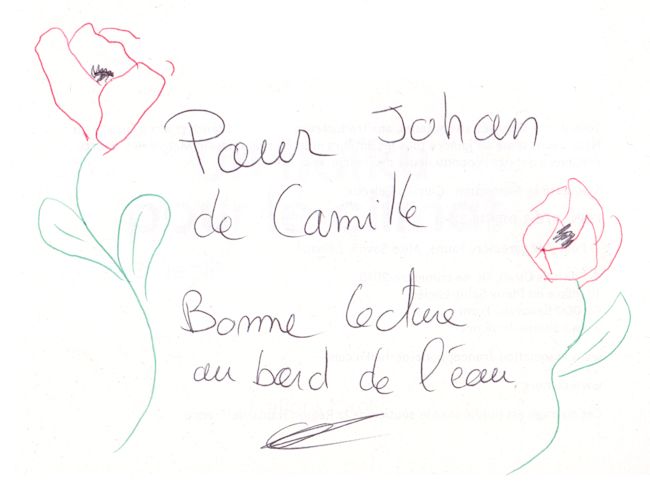 Pour Johan
de Camille
Bonne lecture
au bord de l'eau